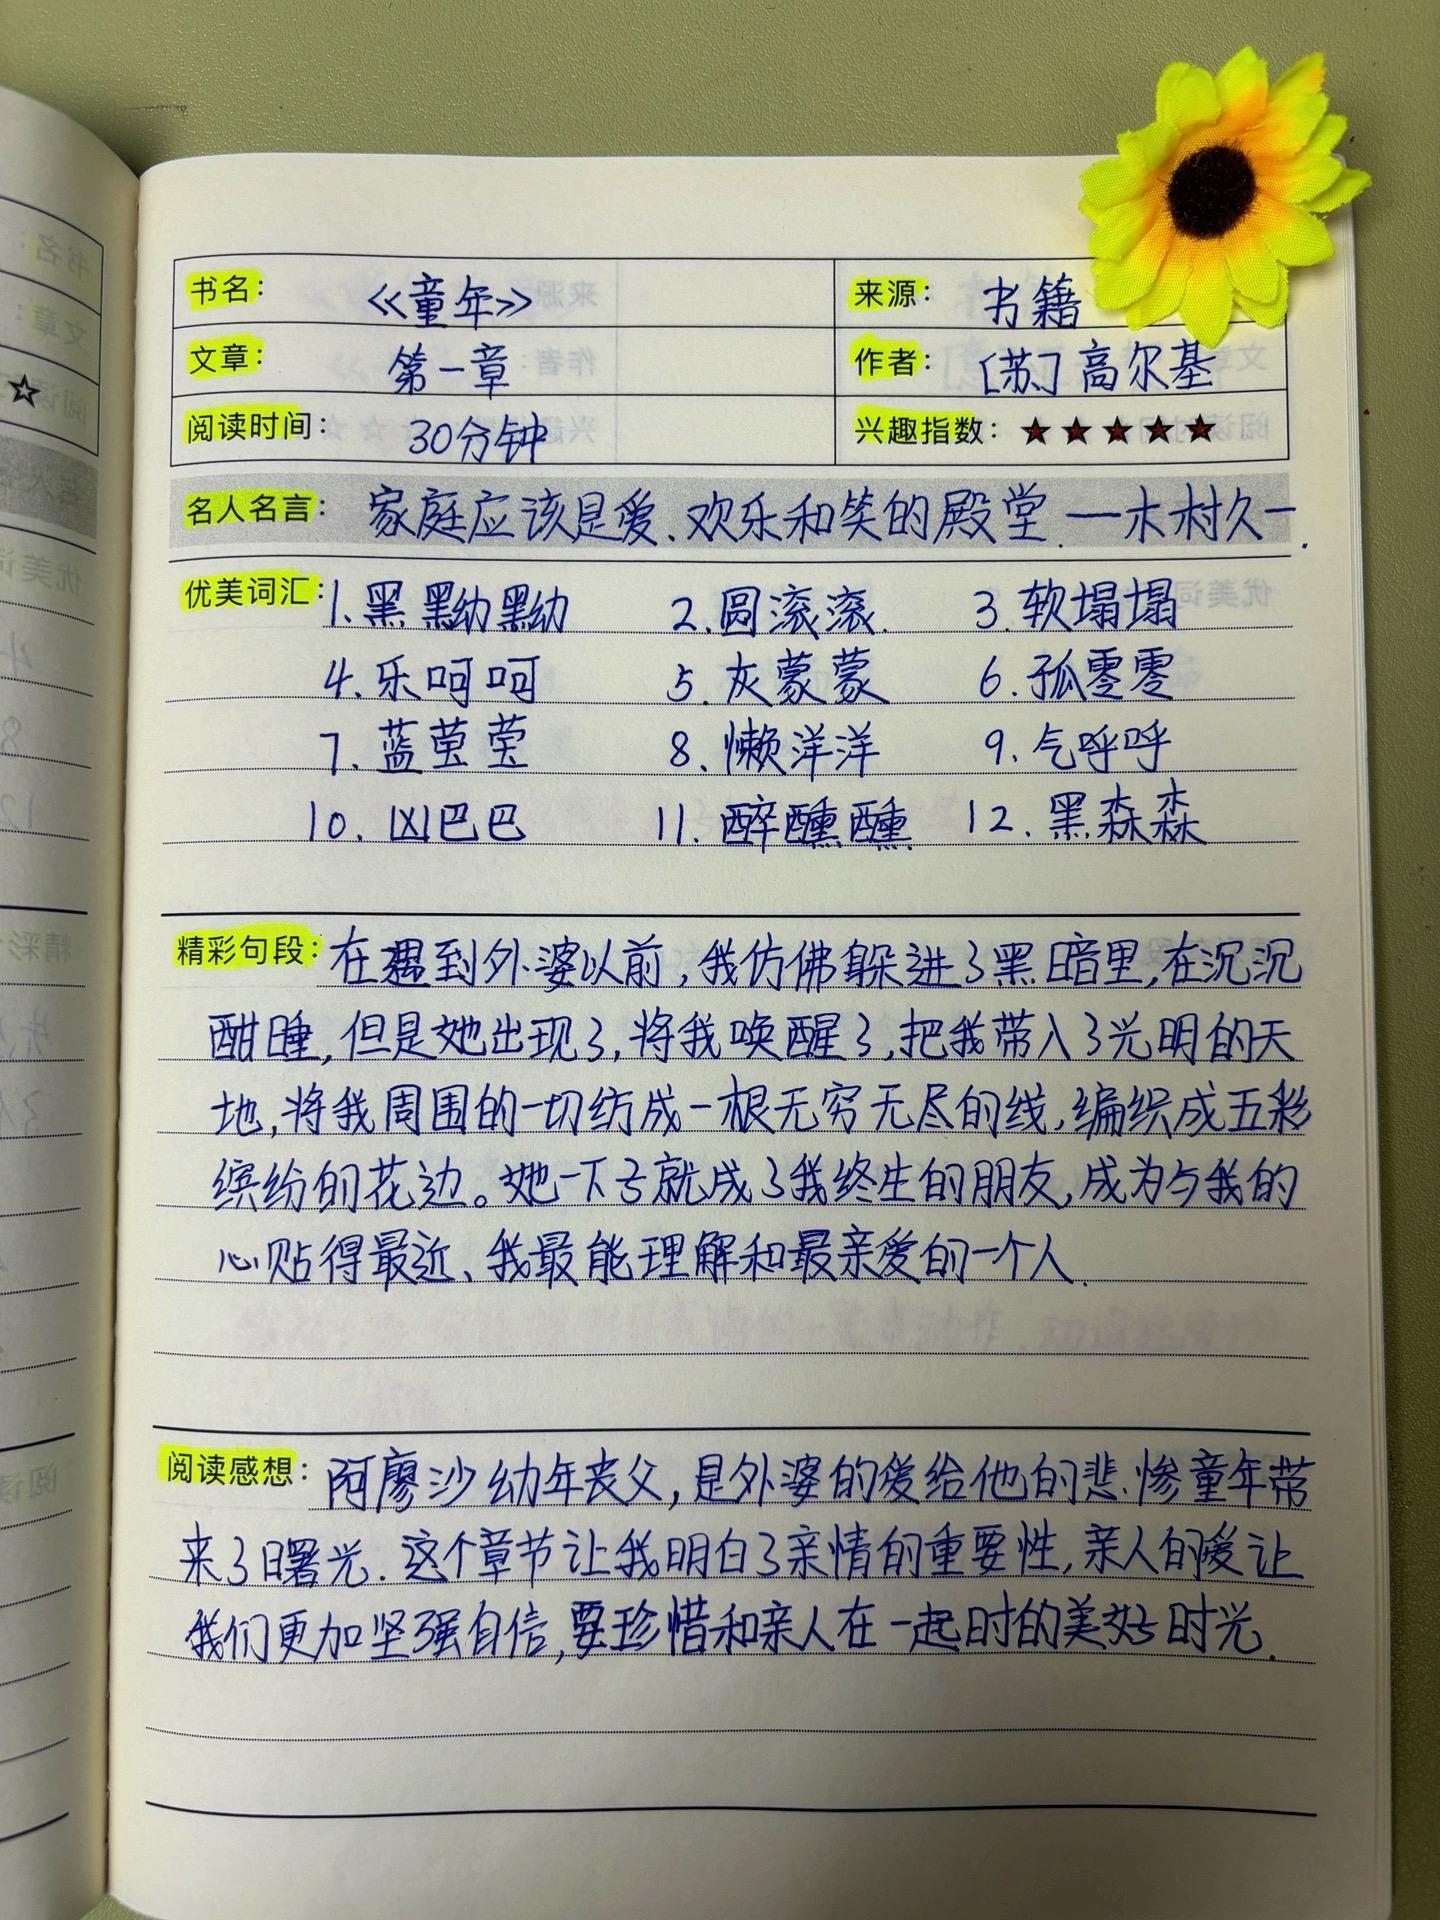 书名： 《童年》 来源： 书籍
文章： 第一章 作者： [苏] 高尔基
阅读时间： 30分钟 兴趣指数： ★★★★★
名人名言： 家庭应该是爱、欢乐和笑的殿堂.—木村久一.
优美词汇： 1.黑黝黝 2.圆滚滚. 3.软塌塌
4.乐呵呵 5.灰蒙蒙 6.孤零零
7.蓝莹莹 8.懒洋洋 9.气呼呼
10.凶巴巴 11.醉醺醺 12.黑森森
精彩句段： 在遇到外婆以前,我仿佛躲进了黑暗里,在沉沉
酣睡,但是她出现了,将我唤醒了,把我带入了光明的天
地,将我周围的一切纺成一根无穷无尽的线,编织成五彩
缤纷的花边。她一下子就成了我终生的朋友,成为与我的
心贴得最近、我最能理解和最亲爱的一个人.
阅读感想： 阿廖沙幼年丧父,是外婆的爱给他的悲惨童年带
来了曙光.这个章节让我明白了亲情的重要性,亲人的爱让
我们更加坚强自信,要珍惜和亲人在一起时的美好时光.